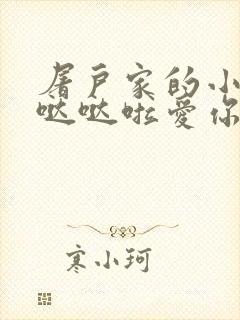 屠户家的小
哒哒啦爱你
寒小珂